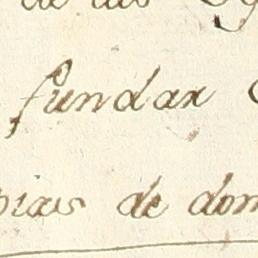 de las
fundar
pias de dom